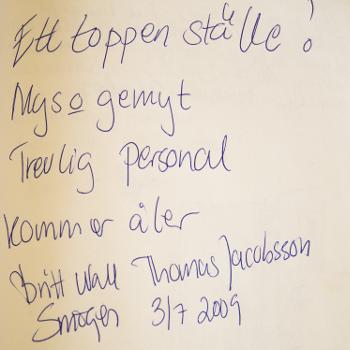 Ett toppen ställe!
Mys o gemyt
Trevlig personal
kommer åter
Britt Wall Thomas Jacobsson
Smögen 3/7 2009